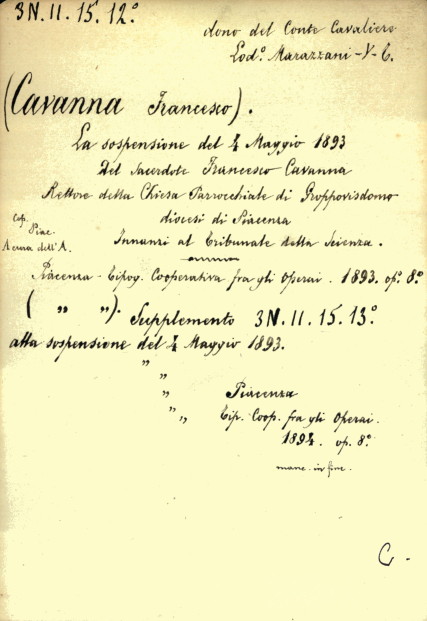 3N.II.15.12º
dono del Conte Cavaliere
Lodº. Marazzani-V-C.
(Cavanna Francesco).
La sospensione del 4 Maggio 1893
del Sacerdote Francesco Cavanna
Rettore della Chiesa Parrocchiale di Groppovisdomo
diocesi di Piacenza
Cop.
Piac.
A cura dell'A.
Innanzi al Tribunale della Scienza.
Piacenza - Tipog. Cooperativa fra gli Operai. 1893. op. 8º
( " " ). Supplemento 3N.II.15.13º.
alla sospensione del 4 Maggio 1893.
"
" Piacenza
" " Tip. Coop. fra gli Operai.
1894. op. 8º
manc. in fine.
C.